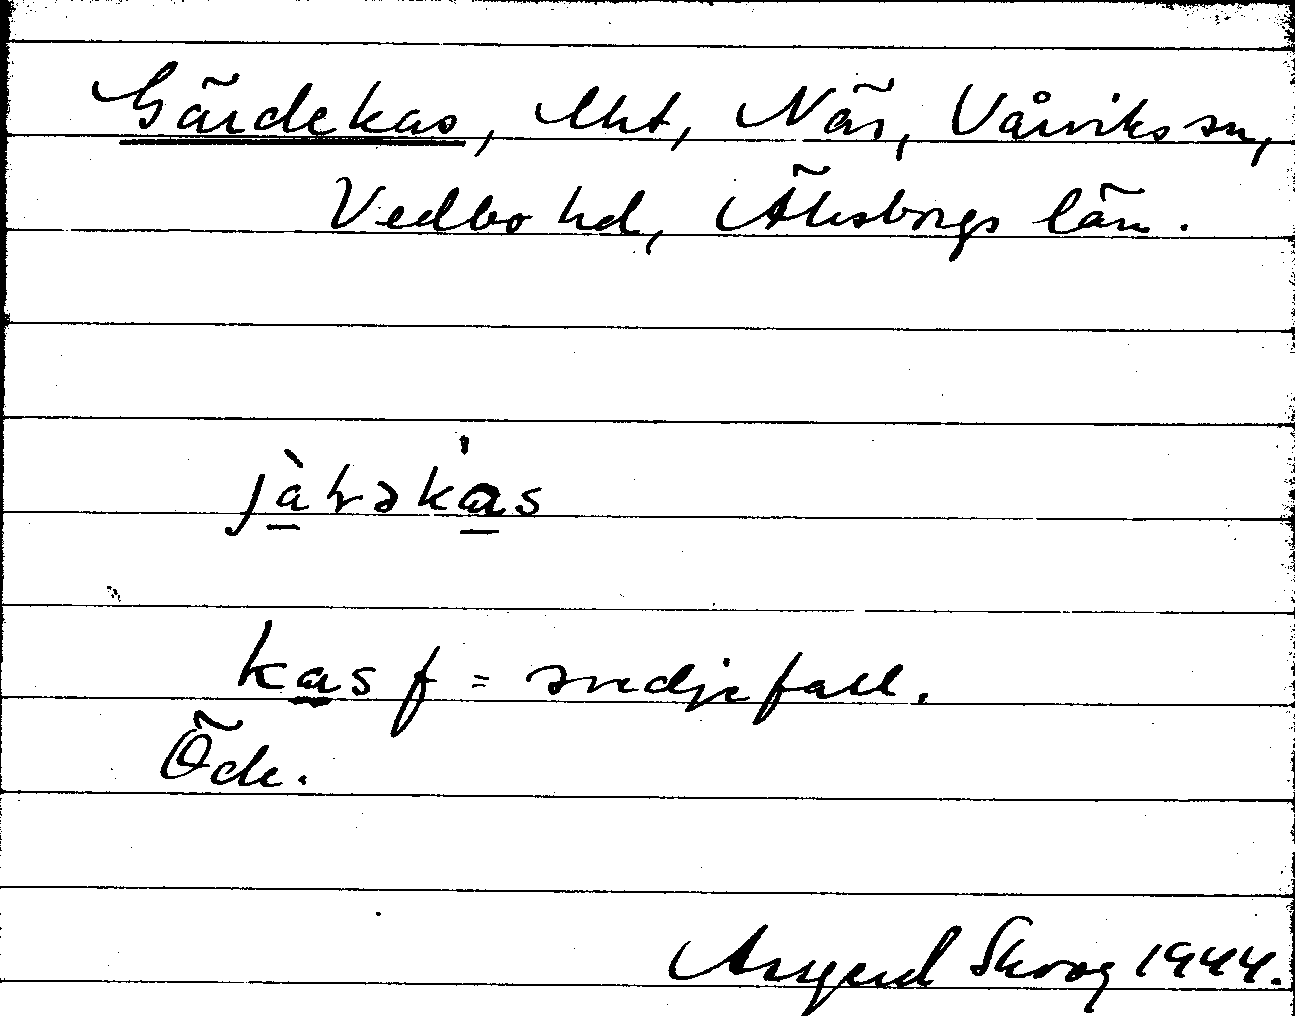 Gärdekas, lht, När, Vårviks sn,
Vedbo hd, Älvsborgs län.
jàtəkas
kas f = svedjefall.
Öde.
Skoog 1944.